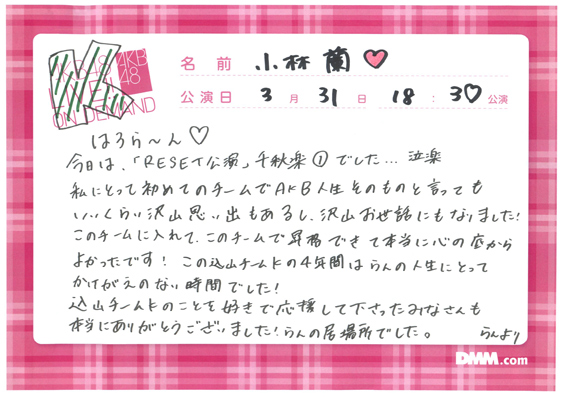 AKB48
LIVE!!
ON DEMAND
AKB
48
K
名前 小林 蘭 ♥
公演日 3月31日 18:30公演
はろら〜ん♡
今日は、「RESET公演」千秋楽①でした… 泣楽
私にとって初めてのチームでAKB人生そのものと言っても
いいくらい沢山思い出もあるし、沢山お世話にもなりました!
このチームに入れて、このチームで昇格できて本当に心の底から
よかったです! この込山チームKの4年間はらんの人生にとって
かけがえのない時間でした!
込山チームKのことを好きで応援して下さったみなさんも
本当にありがとうございました!らんの居場所でした。 らんより
DMM.com